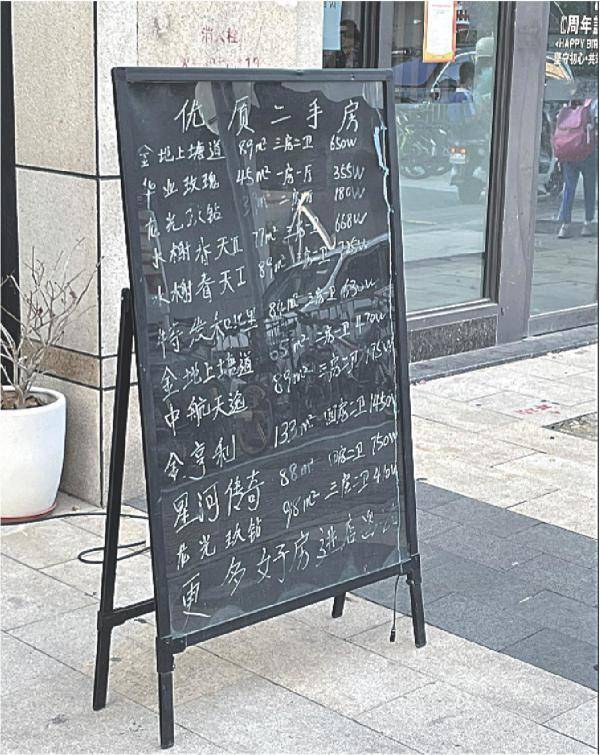 消火栓
周年
HAPPY BIR
坚守初心·共
优质二手房
金地上塘道 89m² 三房二卫 650W
华业玫瑰 45m² 一房一厅 355W
龙光玖钻 180W
水榭春天Ⅱ 77m² 668W
水榭春天Ⅰ 89m² 三房二卫
特发和平里 三房二卫
金地上塘道 三房二卫 470W
中航天逸 89m² 三房二卫
金亨利 133m² 四房二卫 1450W
星河传奇 88m² 房二卫 750W
龙光玖钻 98m² 三房二卫
更多好房进店